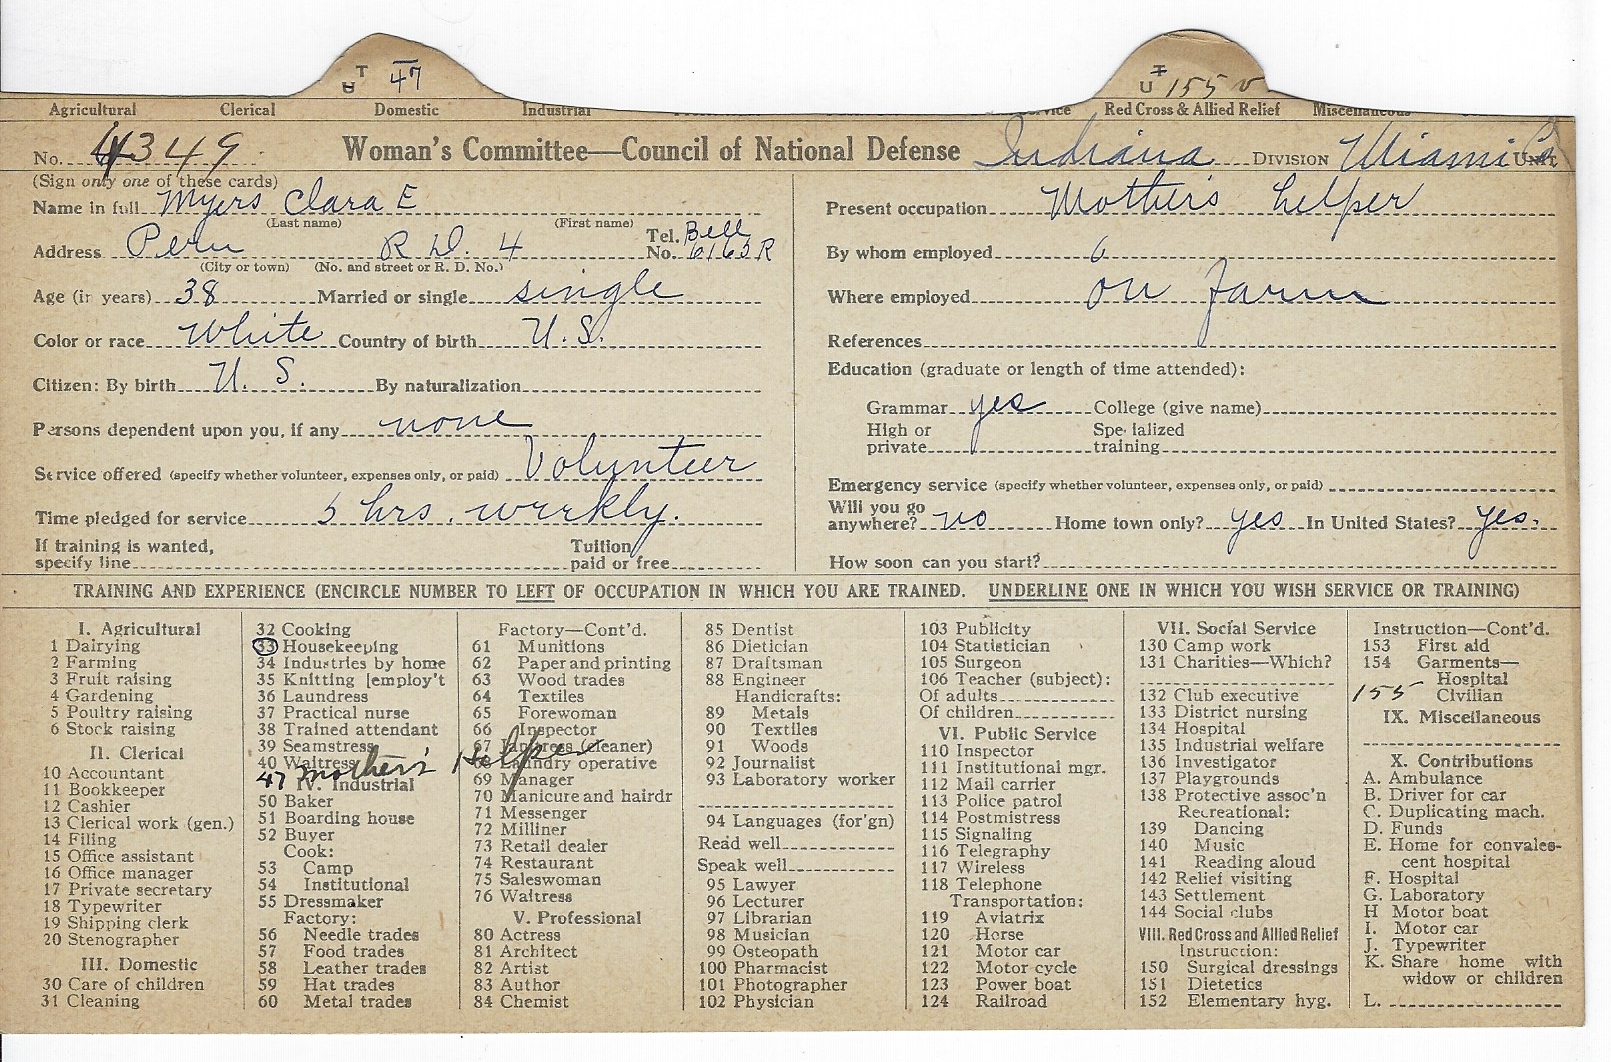 T U 47 T U 155 v
Agricultural Clerical Domestic Industrial Red Cross & Allied Relief Miscellaneous
No. 4349 Woman's Committee—Council of National Defense Indiana DIVISION Miami Co UNIT
(Sign only one of these cards)
Name in full Myers Clara E
(Last name) (First name)
Address Peru R D. 4 Tel. No. Bell 6163R
(City or town) (No. and street or R. D. No.)
Age (in years) 38 Married or single single
Color or race White Country of birth U.S.
Citizen: By birth U. S. By naturalization
Persons dependent upon you, if any none
Service offered (specify whether volunteer, expenses only, or paid) Volunteer
Time pledged for service 5 hrs. weekly.
If training is wanted, specify line Tuition paid or free
Present occupation Mother's helper
By whom employed
Where employed on farm
References
Education (graduate or length of time attended):
Grammar yes College (give name)
High or private Specialized training
Emergency service (specify whether volunteer, expenses only, or paid)
Will you go anywhere? no Home town only? yes In United States? yes.
How soon can you start?
TRAINING AND EXPERIENCE (ENCIRCLE NUMBER TO LEFT OF OCCUPATION IN WHICH YOU ARE TRAINED. UNDERLINE ONE IN WHICH YOU WISH SERVICE OR TRAINING)
I. Agricultural
1 Dairying
2 Farming
3 Fruit raising
4 Gardening
5 Poultry raising
6 Stock raising
II. Clerical
10 Accountant
11 Bookkeeper
12 Cashier
13 Clerical work (gen.)
14 Filing
15 Office assistant
16 Office manager
17 Private secretary
18 Typewriter
19 Shipping clerk
20 Stenographer
III. Domestic
30 Care of children
31 Cleaning
32 Cooking
33 Housekeeping
34 Industries by home
35 Knitting [employ't
36 Laundress
37 Practical nurse
38 Trained attendant
39 Seamstress
40 Waitress
47 Mother's Helper
IV. Industrial
50 Baker
51 Boarding house
52 Buyer
Cook:
53 Camp
54 Institutional
55 Dressmaker
Factory:
56 Needle trades
57 Food trades
58 Leather trades
59 Hat trades
60 Metal trades
Factory—Cont'd.
61 Munitions
62 Paper and printing
63 Wood trades
64 Textiles
65 Forewoman
66 Inspector
67 Janitress (cleaner)
68 Laundry operative
69 Manager
70 Manicure and hairdr
71 Messenger
72 Milliner
73 Retail dealer
74 Restaurant
75 Saleswoman
76 Waitress
V. Professional
80 Actress
81 Architect
82 Artist
83 Author
84 Chemist
85 Dentist
86 Dietician
87 Draftsman
88 Engineer
Handicrafts:
89 Metals
90 Textiles
91 Woods
92 Journalist
93 Laboratory worker
94 Languages (for'gn)
Read well
Speak well
95 Lawyer
96 Lecturer
97 Librarian
98 Musician
99 Osteopath
100 Pharmacist
101 Photographer
102 Physician
103 Publicity
104 Statistician
105 Surgeon
106 Teacher (subject):
Of adults
Of children
VI. Public Service
110 Inspector
111 Institutional mgr.
112 Mail carrier
113 Police patrol
114 Postmistress
115 Signaling
116 Telegraphy
117 Wireless
118 Telephone
Transportation:
119 Aviatrix
120 Horse
121 Motor car
122 Motor cycle
123 Power boat
124 Railroad
VII. Social Service
130 Camp work
131 Charities—Which?
132 Club executive
133 District nursing
134 Hospital
135 Industrial welfare
136 Investigator
137 Playgrounds
138 Protective assoc'n
Recreational:
139 Dancing
140 Music
141 Reading aloud
142 Relief visiting
143 Settlement
144 Social clubs
VIII. Red Cross and Allied Relief
Instruction:
150 Surgical dressings
151 Dietetics
152 Elementary hyg.
Instruction—Cont'd.
153 First aid
154 Garments—
Hospital
155 Civilian
IX. Miscellaneous
X. Contributions
A. Ambulance
B. Driver for car
C. Duplicating mach.
D. Funds
E. Home for convales-
cent hospital
F. Hospital
G. Laboratory
H Motor boat
I. Motor car
J. Typewriter
K. Share home with
widow or children
L.